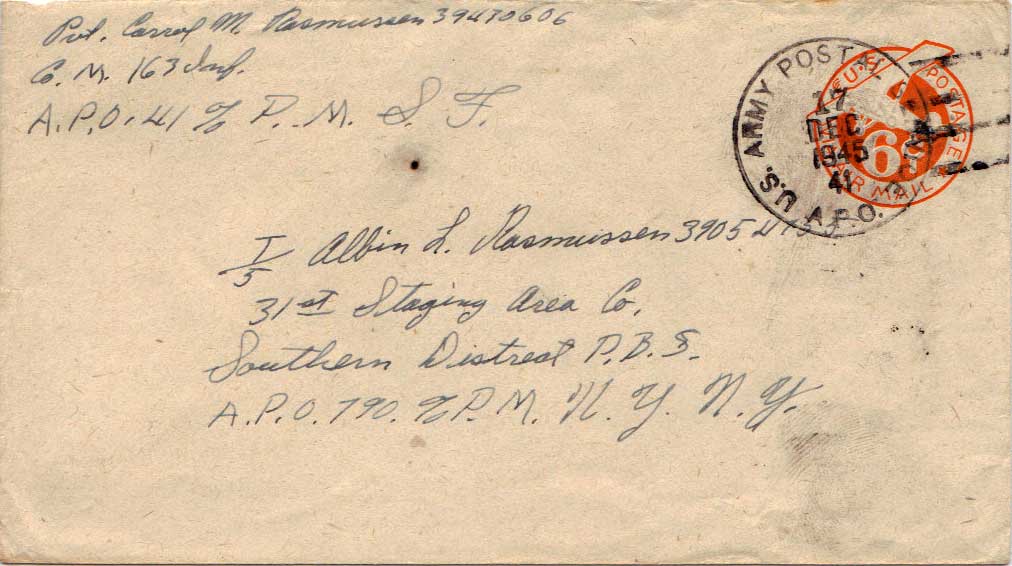 Pvt. Carrol M. Rasmussen 39470606
Co. M. 163 Inf.
A.P.O. 41 % P. M. S. F.
U.S. ARMY POSTAL
A.P.O.
17
DEC
1945
41
U.S. POSTAGE
6¢
AIR MAIL
T/5 Albin L. Rasmussen 3905
31st Staging Area Co.
Southern Distreat P.B.S.
A.P.O. 790. % P. M. N. Y. N. Y.